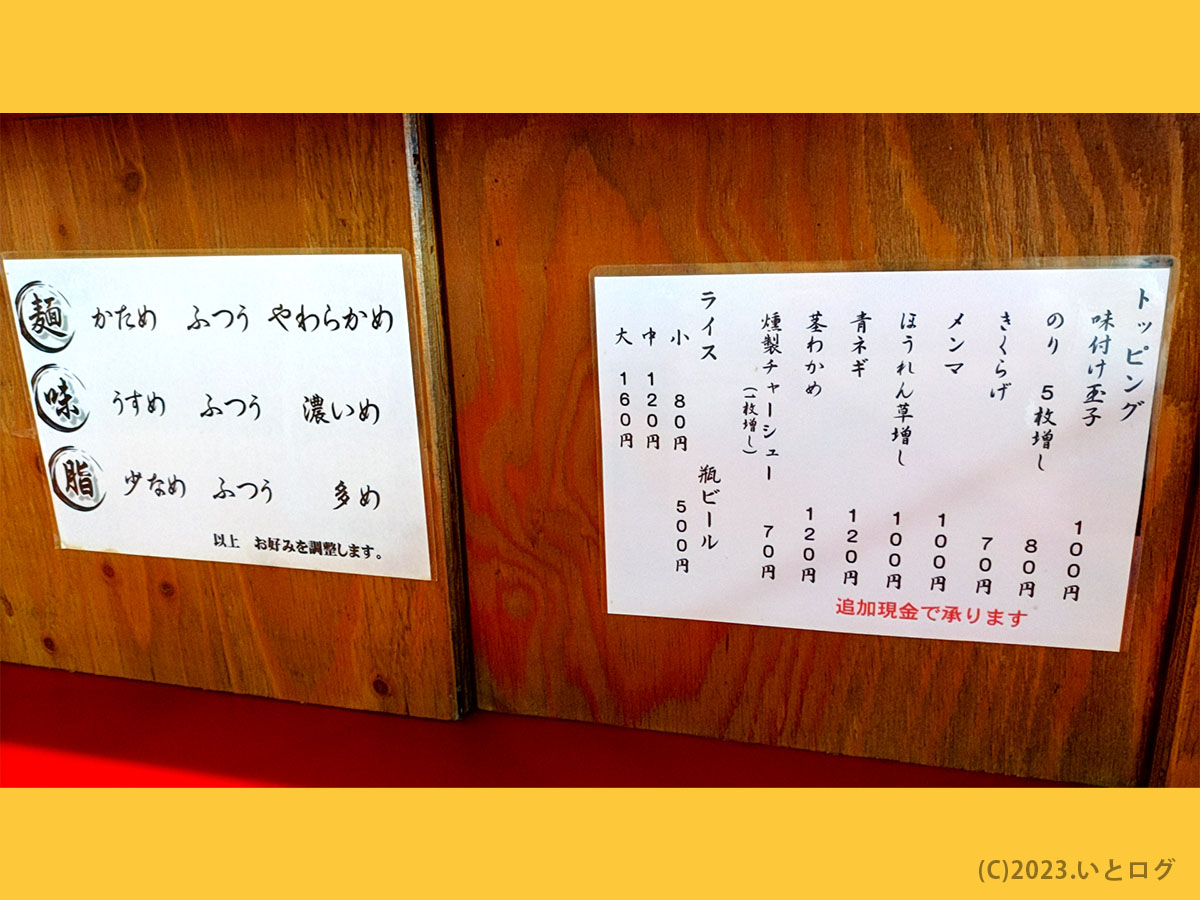 麺 かため ふつう やわらかめ
味 うすめ ふつう 濃いめ
脂 少なめ ふつう 多め
以上 お好みを調整します。
トッピング
味付け玉子 100円
のり 5枚増し 80円
きくらげ 70円
メンマ 100円
ほうれん草増し 100円
青ネギ 120円
茎わかめ 120円
燻製チャーシュー 70円
(1枚増し)
ライス
小 80円
中 120円
大 160円
瓶ビール
500円
追加現金で承ります
(C)2023.いとログ